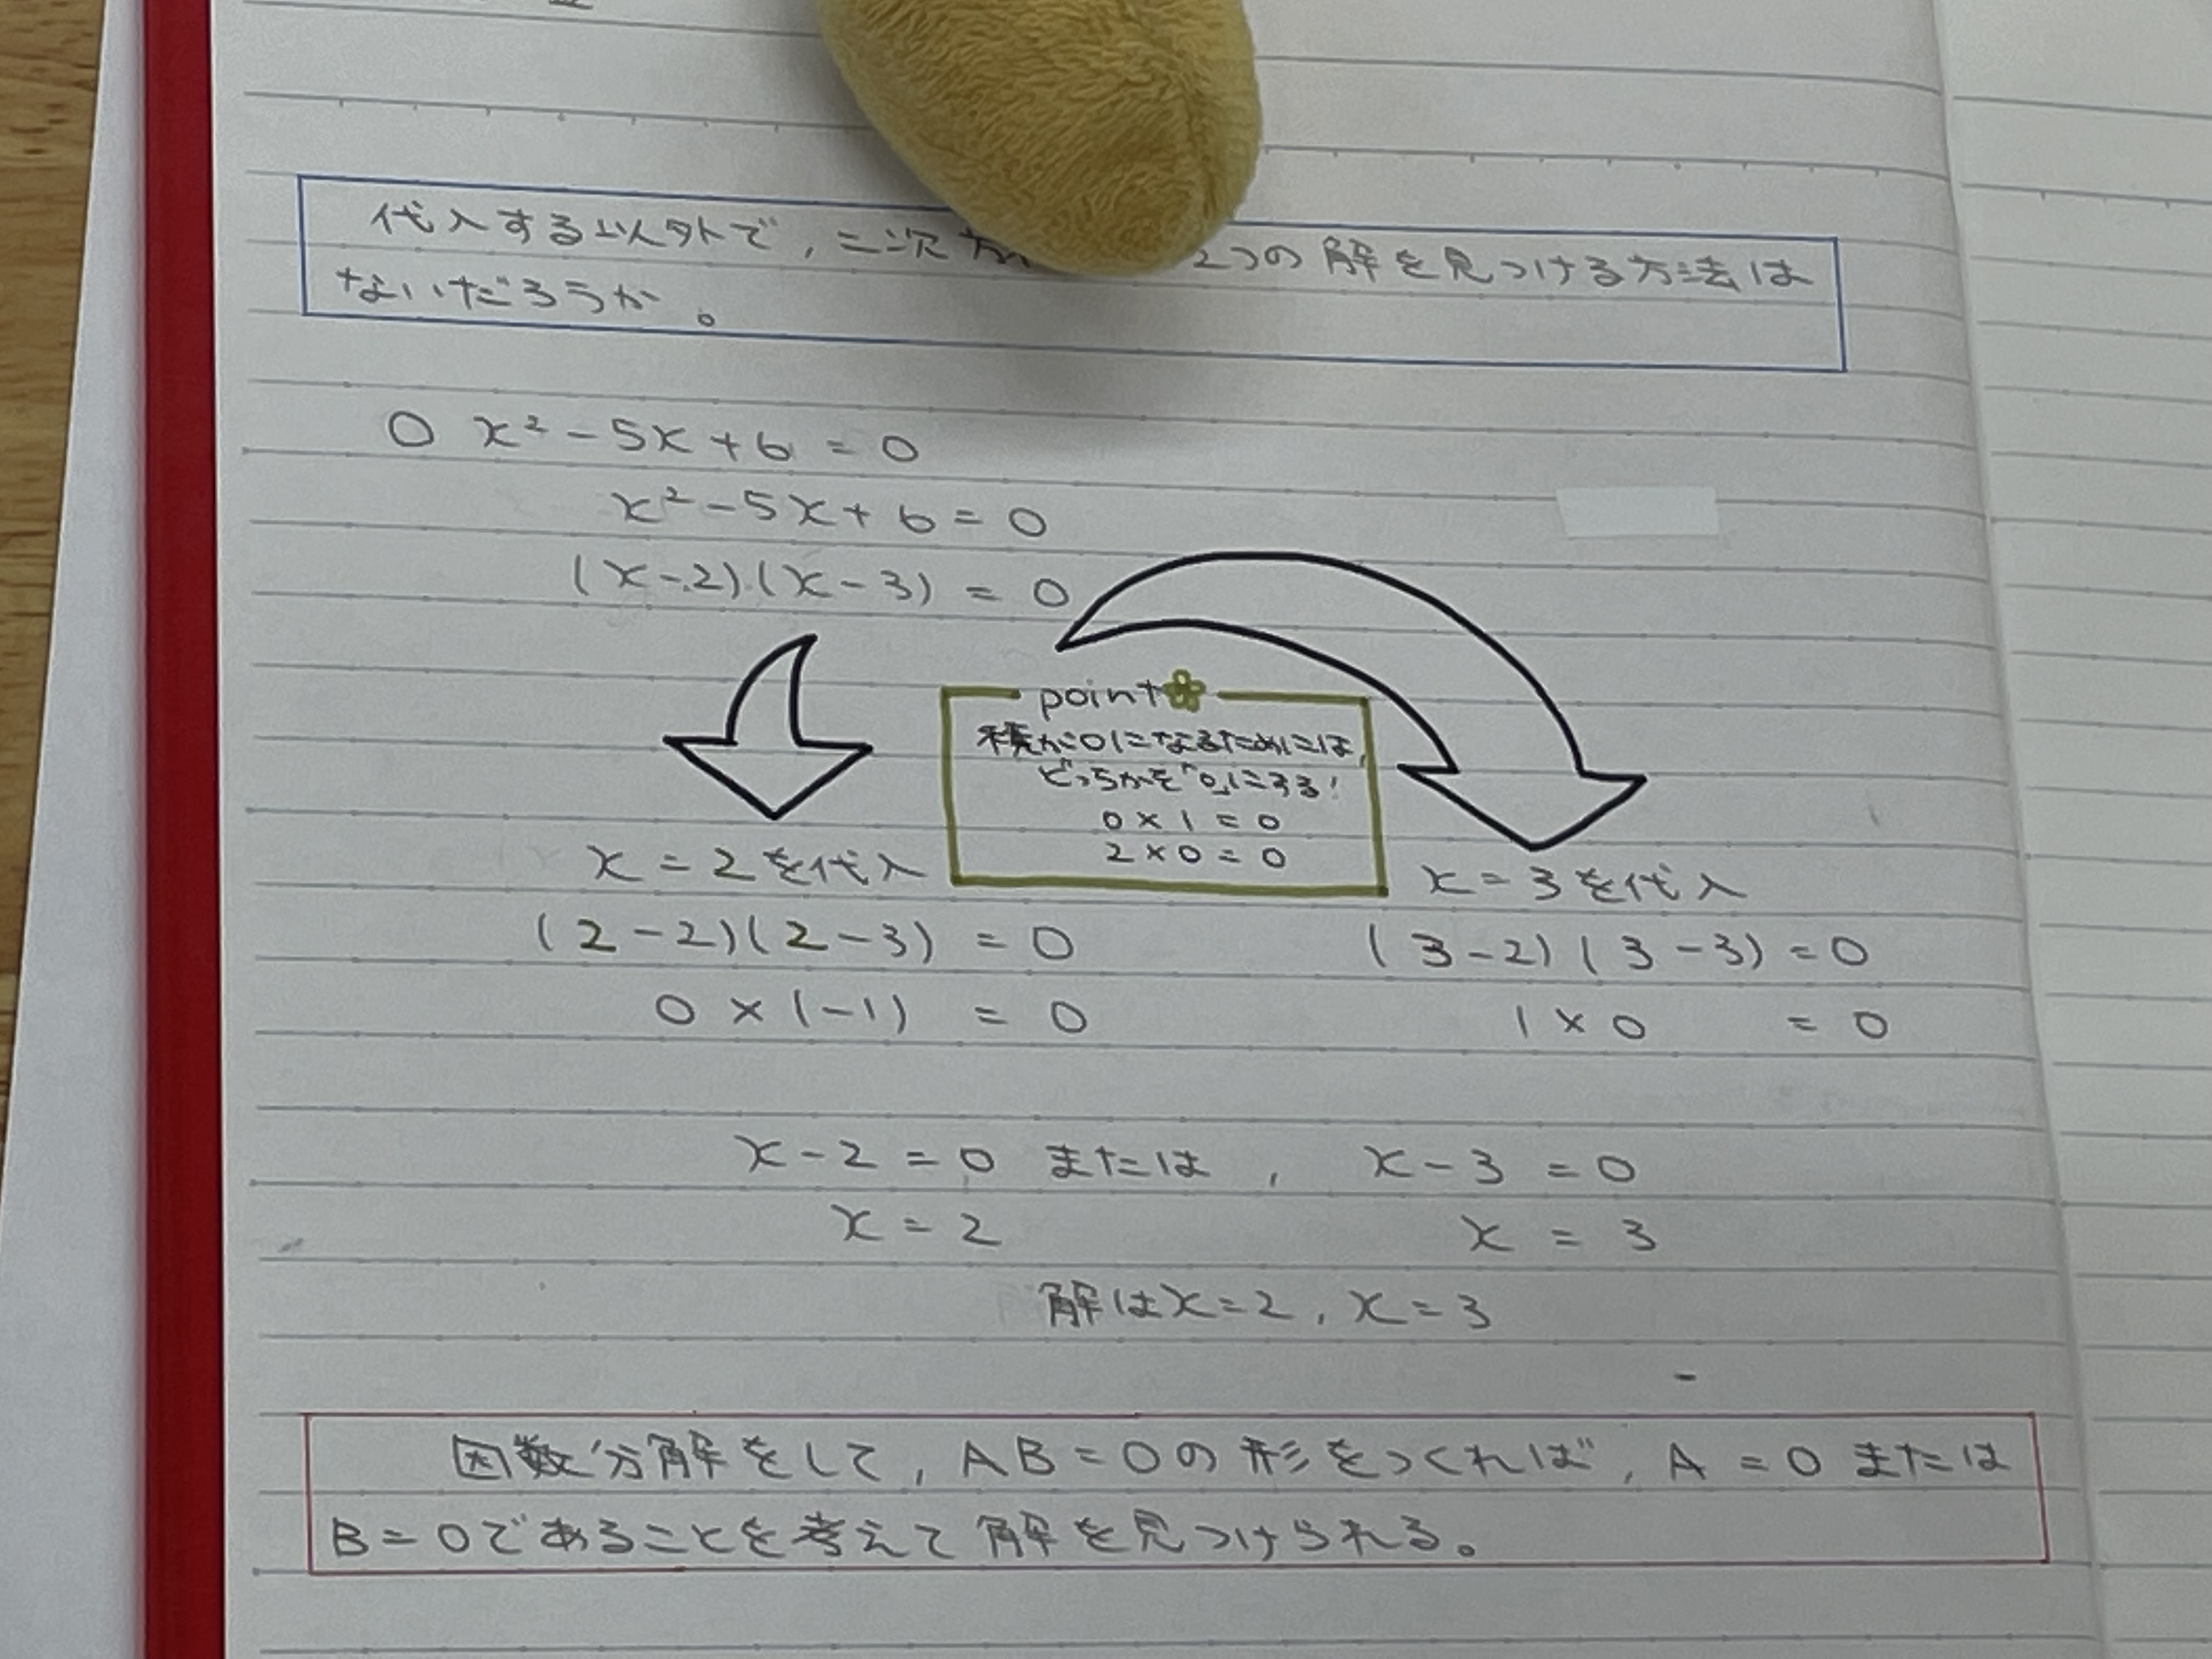 代入する以外で,二次方 2つの解を見つける方法は
ないだろうか。
○ x² - 5x + 6 = 0
x² - 5x + 6 = 0
(x - 2)(x - 3) = 0
point
積が0になるためには,
どっちかを「0」にする!
0 × 1 = 0
2 × 0 = 0
x = 2を代入
(2 - 2)(2 - 3) = 0
0 × (-1) = 0
x = 3を代入
(3 - 2)(3 - 3) = 0
1 × 0 = 0
x - 2 = 0 または , x - 3 = 0
x = 2 x = 3
解はx = 2 , x = 3
因数分解をして, AB = 0の形をつくれば, A = 0 または
B = 0であることを考えて解を見つけられる。